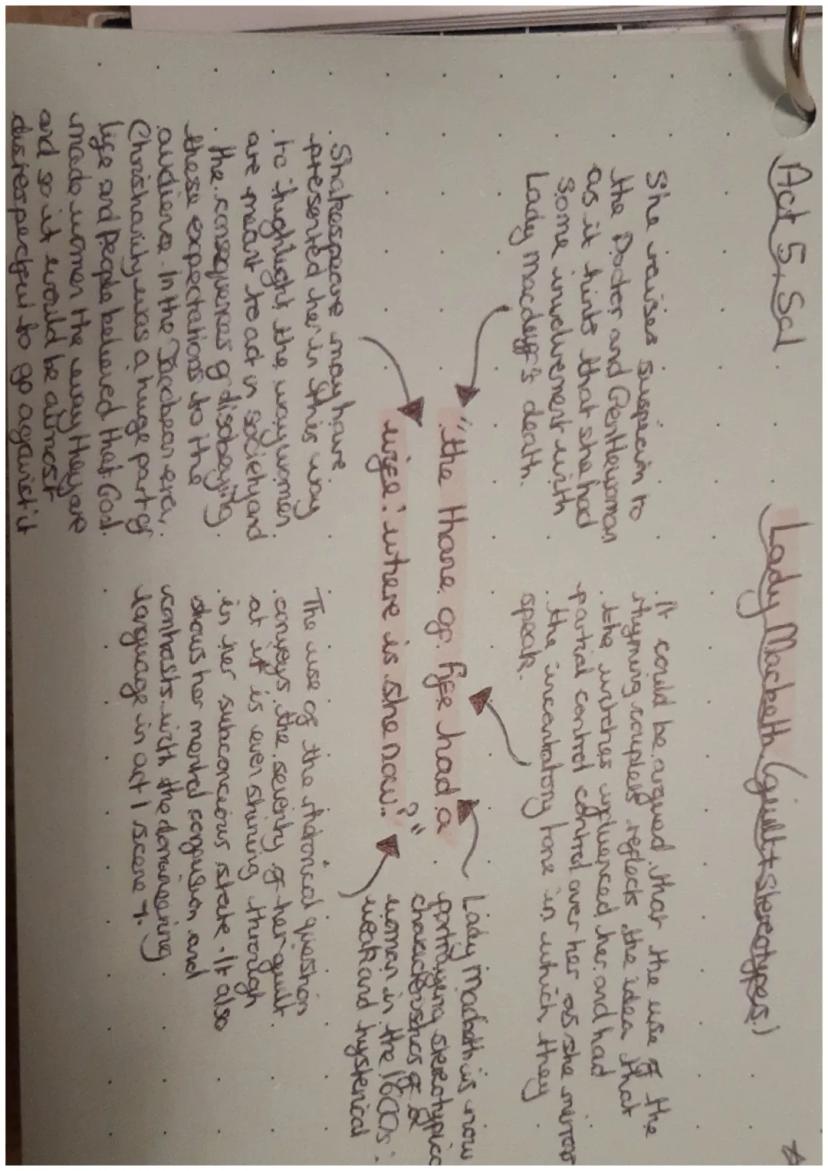 Act 5, Sc1
Lady Macbeth (guilt + stereotypes)
She raises suspicion to
the Doctor and Gentlewoman
as it hints that she had
some involvement with
Lady Macduff's death.
It could be argued that the use of the
rhyming couplets reflects the idea that
the witches influenced her and had
partial control control over her as she mirrors
the incantatory tone in which they
speak.
"the thane of fife had a
wife: where is she now?"
Lady Macbeth is now
portraying stereotypical
characteristics of a
woman in the 1600s:
weak and hysterical
Shakespeare may have
presented her in this way
to highlight the way women
are meant to act in society and
the consequences of disobeying
these expectations to the
audience. In the Jacobean era,
Christianity was a huge part of
life and people believed that God
made women the way they are
and so it would be almost
disrespectful to go against it
The use of the rhetorical question
conveys the severity of her guilt
at it is even shining through
in her subconcious state. It also
shows her mental confusion and
contrasts with the domineering
language in act 1 scene 7.